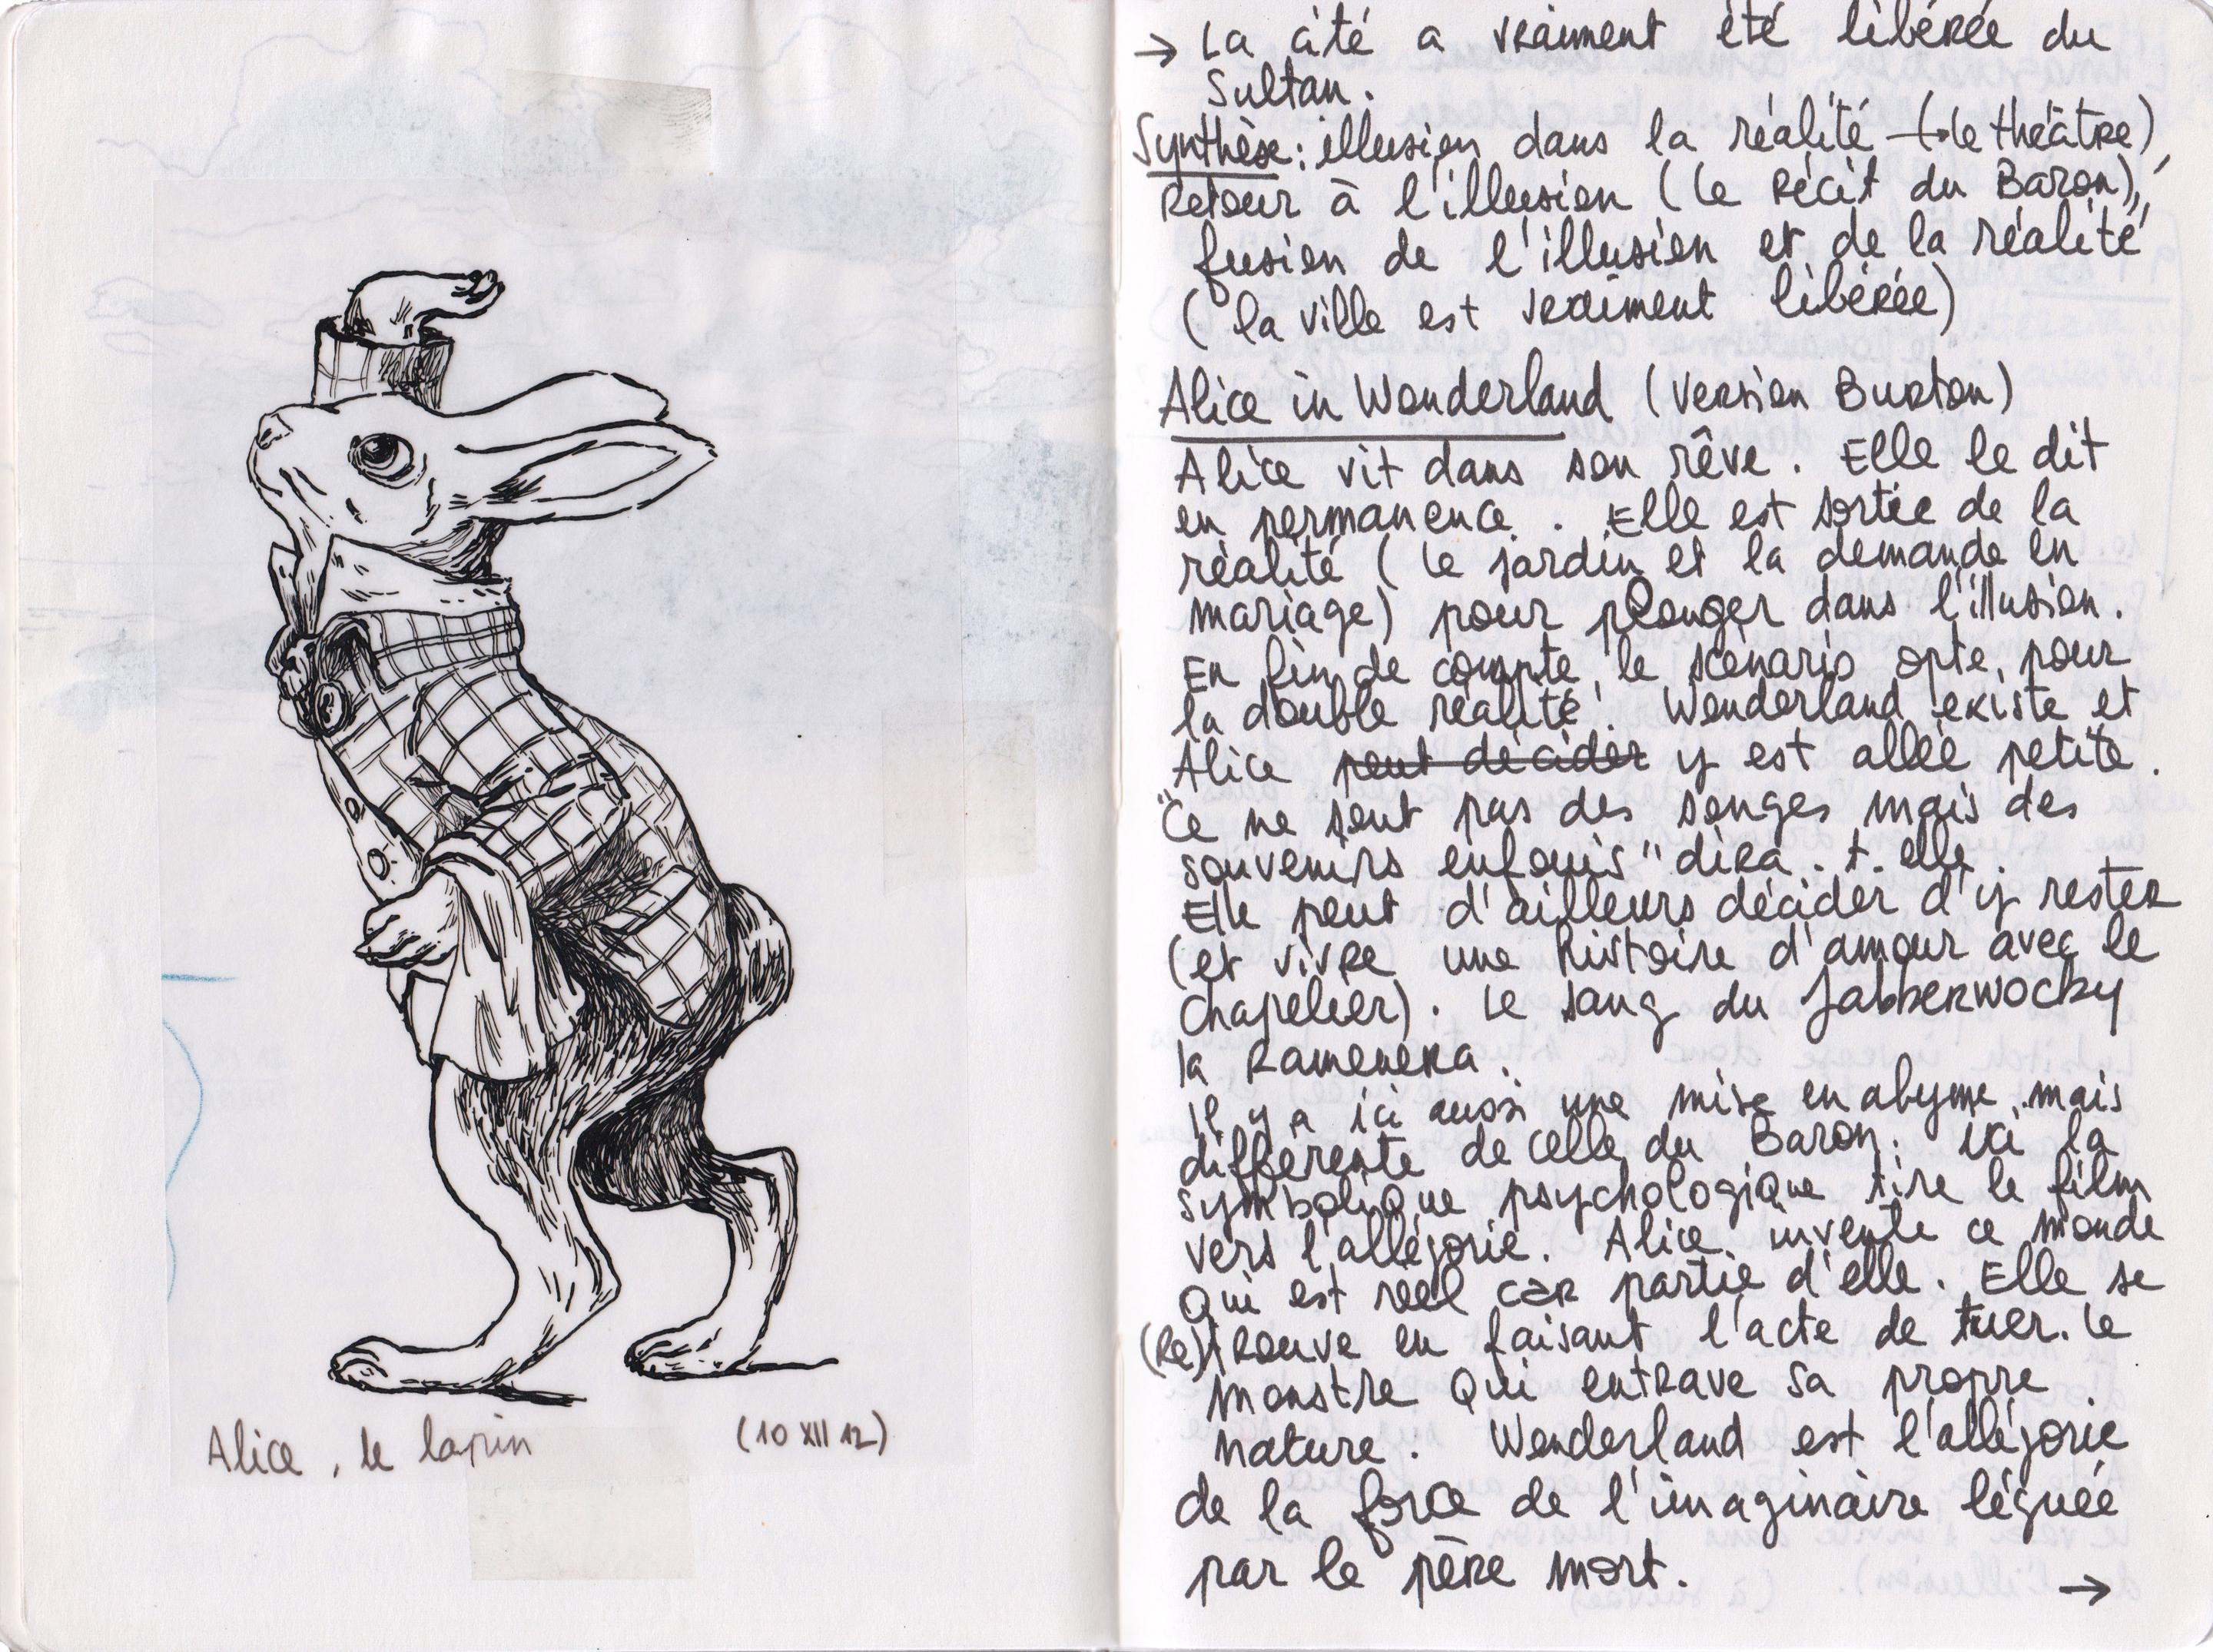 Alice, le lapin (10 XII 12)
→ La cité a vraiment été libérée du
Sultan.
Synthèse : illusion dans la réalité (→ le théâtre),
Retour à l'illusion (le récit du Baron),
fusion de l'illusion et de la réalité
(la ville est vraiment libérée)
Alice in Wonderland (version Burton)
Alice vit dans son rêve. Elle le dit
en permanence. Elle est sortie de la
réalité (le jardin et la demande en
mariage) pour plonger dans l'illusion.
En fin de compte, le scénario opte pour
la double réalité. Wonderland existe et
Alice peut décider y est allée petite.
"Ce ne sont pas des songes mais des
souvenirs enfouis" dira-t-elle.
Elle peut d'ailleurs décider d'y rester
(et vivre une histoire d'amour avec le
Chapelier). Le sang du Jabberwocky
la ramenera.
Il y a ici aussi une mise en abyme, mais
différente de celle du Baron. Ici la
symbolique psychologique tire le film
vers l'allégorie. Alice invente ce monde
qui est réel car partie d'elle. Elle se
(Re)trouve en faisant l'acte de tuer le
monstre qui entrave sa propre
nature. Wonderland est l'allégorie
de la force de l'imaginaire léguée
par le père mort. →